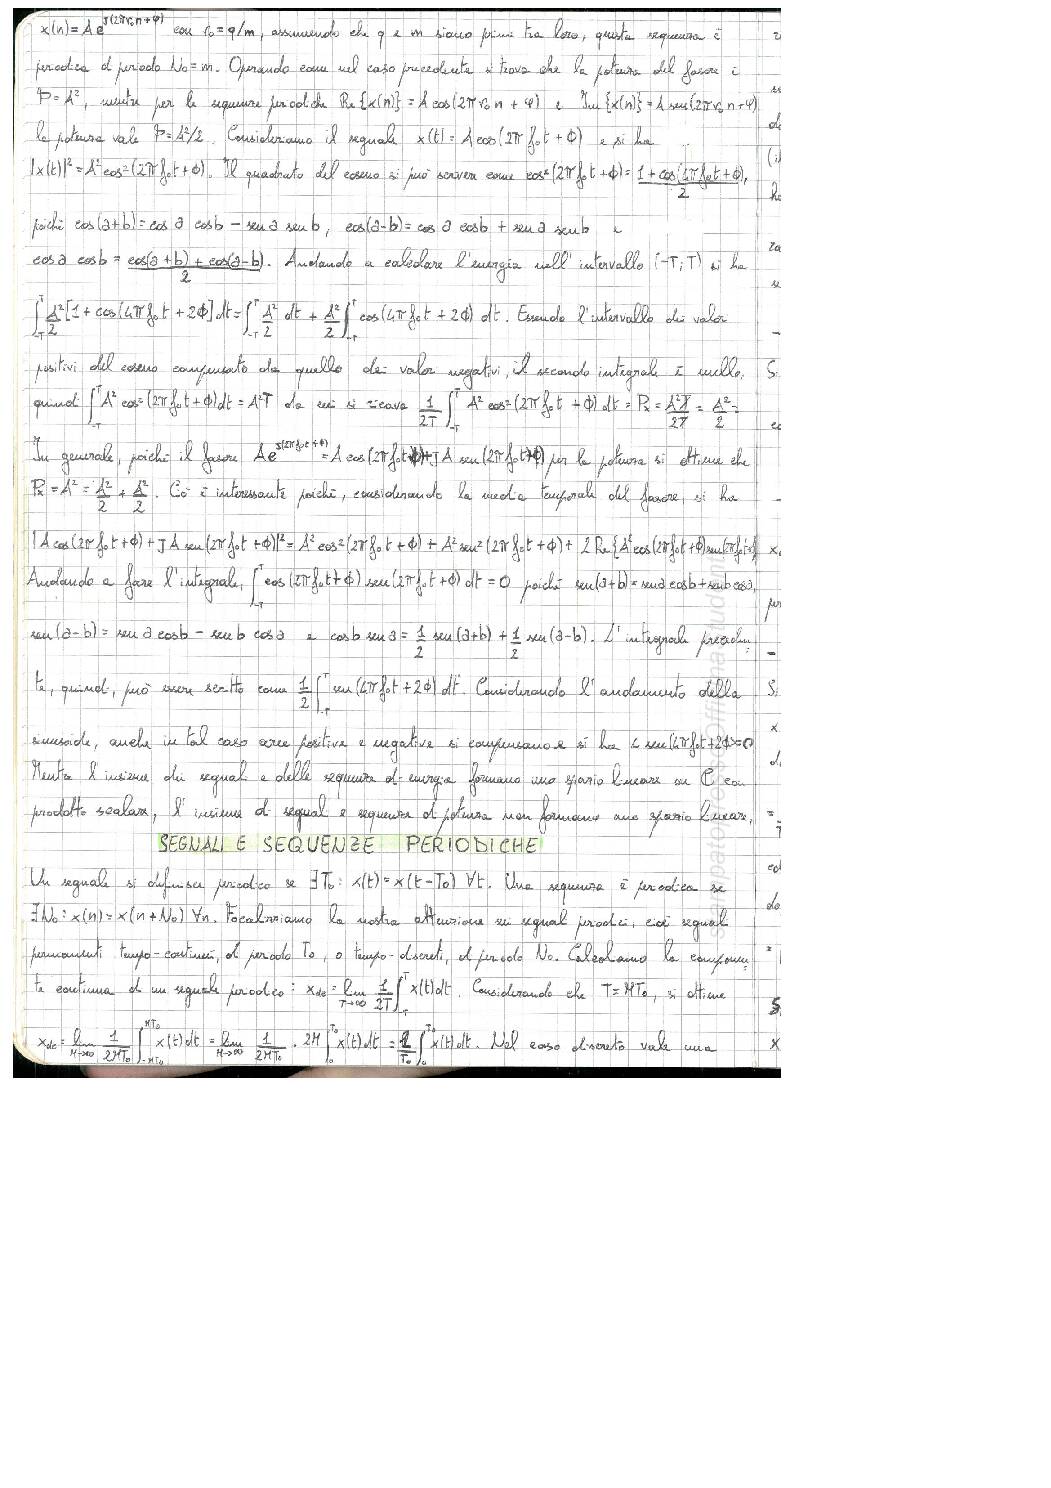 x(n) = A e^{J(2πν₀n+φ)} con ν₀ = q/m, assumendo che q e m siano primi tra loro, questa sequenza è
periodica di periodo N₀ = m. Operando come nel caso precedente si trova che la potenza del fasore è
P = A², mentre per le sequenze periodiche Re{x(n)} = A cos(2πν₀n + φ) e Im{x(n)} = A sen(2πν₀n+φ)
la potenza vale P = A²/2. Consideriamo il segnale x(t) = A cos(2πf₀t + Φ) e si ha
|x(t)|² = A² cos²(2πf₀t + Φ). Il quadrato del coseno si può scrivere come cos²(2πf₀t+Φ) = (1 + cos(4πf₀t+Φ))/2,
poiché cos(a+b) = cos a cos b − sen a sen b, cos(a-b) = cos a cos b + sen a sen b e
cos a cos b = (cos(a+b) + cos(a-b))/2. Andando a calcolare l'energia nell'intervallo (-T; T) si ha
∫_{-T}^{T} A²/2 [1 + cos(4πf₀t + 2Φ)] dt = ∫_{-T}^{T} A²/2 dt + A²/2 ∫_{-T}^{T} cos(4πf₀t + 2Φ) dt. Essendo l'intervallo dei valor
positivi del coseno compensato da quello dei valor negativi, il secondo integrale è nullo,
quindi ∫_{-T}^{T} A² cos²(2πf₀t+Φ) dt = A²T da cui si ricava 1/2T ∫_{-T}^{T} A² cos²(2πf₀t + Φ) dt = Pₓ = A²T/2T = A²/2 =
In generale, poiché il fasore A e^{J(2πf₀t+Φ)} = A cos(2πf₀t+Φ)+JA sen(2πf₀t+Φ) per la potenza si ottiene che
Pₓ = A² = A²/2 + A²/2. Ciò è interessante poiché, considerando la media temporale del fasore, si ha
|A cos(2πf₀t+Φ) + JA sen(2πf₀t+Φ)|² = A² cos²(2πf₀t+Φ) + A² sen²(2πf₀t+Φ) + 2 Re{A² cos(2πf₀t+Φ) sen(2πf₀t+
Andando a fare l'integrale, ∫_{-T}^{T} cos(2πf₀t+Φ) sen(2πf₀t+Φ) dt = 0 poiché sen(a+b) = sen a cos b + sen b cos a,
sen(a-b) = sen a cos b − sen b cos a e cos b sen a = 1/2 sen(a+b) + 1/2 sen(a-b). L'integrale preceden-
te, quindi, può essere scritto come 1/2 ∫_{-T}^{T} sen(4πf₀t+2Φ) dt. Considerando l'andamento della
sinusoide, anche in tal caso aree positive e negative si compensano e si ha < sen(4πf₀t+2Φ)>=0
Mentre l'insieme dei segnali e delle sequenze di energia formano uno spazio lineare su C con
prodotto scalare, l'insieme di segnali e sequenze di potenza non formano uno spazio lineare.
SEGNALI E SEQUENZE PERIODICHE
Un segnale si definisce periodico se ∃T₀: x(t) = x(t-T₀) ∀t. Una sequenza è periodica se
∃N₀: x(n) = x(n+N₀) ∀n. Focalizziamo la nostra attenzione sui segnali periodici, cioè segnali
permanenti tempo-continui, di periodo T₀, o tempo-discreti, di periodo N₀. Calcoliamo la componen-
te continua di un segnale periodico: x_dc = lim_{T→∞} 1/2T ∫_{-T}^{T} x(t) dt. Considerando che T = MT₀, si ottiene
x_dc = lim_{M→∞} 1/2MT₀ ∫_{-MT₀}^{MT₀} x(t) dt = lim_{M→∞} 1/2MT₀ · 2M ∫_0^{T₀} x(t) dt = 1/T₀ ∫_0^{T₀} x(t) dt. Nel caso discreto vale una